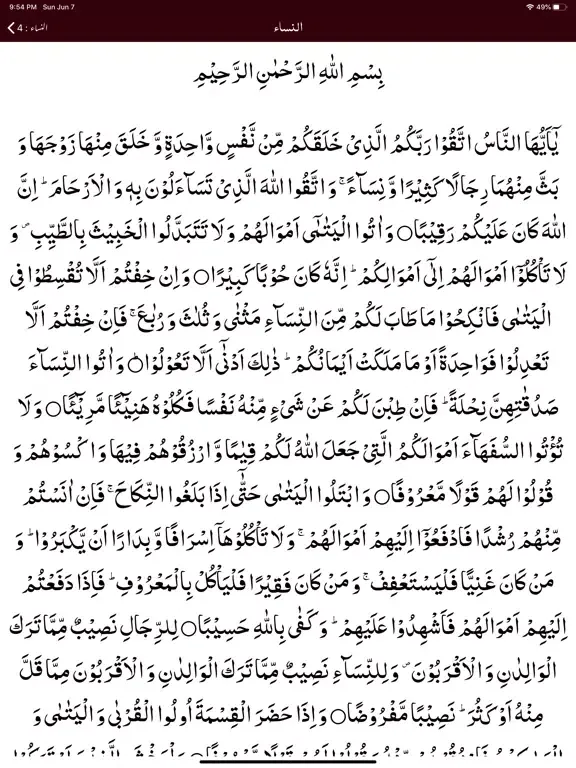 9:54 PM Sun Jun 7 49%
النساء : 4 النساء
بِسْمِ اللّٰهِ الرَّحْمٰنِ الرَّحِيْمِ
يٰۤاَيُّهَا النَّاسُ اتَّقُوْا رَبَّكُمُ الَّذِىْ خَلَقَكُمْ مِّنْ نَّفْسٍ وَّاحِدَةٍ وَّ خَلَقَ مِنْهَا زَوْجَهَا وَ
بَثَّ مِنْهُمَا رِجَالًا كَثِيْرًا وَّ نِسَآءً ۚ وَ اتَّقُوا اللّٰهَ الَّذِىْ تَسَآءَلُوْنَ بِهٖ وَ الْاَرْحَامَ ؕ اِنَّ
اللّٰهَ كَانَ عَلَيْكُمْ رَقِيْبًا○ وَ اٰتُوا الْيَتٰمٰٓى اَمْوَالَهُمْ وَ لَا تَتَبَدَّلُوا الْخَبِيْثَ بِالطَّيِّبِ ۪ وَ
لَا تَاْكُلُوْۤا اَمْوَالَهُمْ اِلٰٓى اَمْوَالِكُمْ ؕ اِنَّهٗ كَانَ حُوْبًا كَبِيْرًا○ وَ اِنْ خِفْتُمْ اَلَّا تُقْسِطُوْا فِى
الْيَتٰمٰى فَانْكِحُوْا مَا طَابَ لَكُمْ مِّنَ النِّسَآءِ مَثْنٰى وَ ثُلٰثَ وَ رُبٰعَ ۚ فَاِنْ خِفْتُمْ اَلَّا
تَعْدِلُوْا فَوَاحِدَةً اَوْ مَا مَلَكَتْ اَيْمَانُكُمْ ؕ ذٰلِكَ اَدْنٰۤى اَلَّا تَعُوْلُوْا○ وَ اٰتُوا النِّسَآءَ
صَدُقٰتِهِنَّ نِحْلَةً ؕ فَاِنْ طِبْنَ لَكُمْ عَنْ شَىْءٍ مِّنْهُ نَفْسًا فَكُلُوْهُ هَنِيْٓئًا مَّرِيْٓئًا○ وَ لَا
تُؤْتُوا السُّفَهَآءَ اَمْوَالَكُمُ الَّتِىْ جَعَلَ اللّٰهُ لَكُمْ قِيٰمًا وَّ ارْزُقُوْهُمْ فِيْهَا وَ اكْسُوْهُمْ وَ
قُوْلُوْا لَهُمْ قَوْلًا مَّعْرُوْفًا○ وَ ابْتَلُوا الْيَتٰمٰى حَتّٰۤى اِذَا بَلَغُوا النِّكَاحَ ۚ فَاِنْ اٰنَسْتُمْ
مِّنْهُمْ رُشْدًا فَادْفَعُوْۤا اِلَيْهِمْ اَمْوَالَهُمْ ۚ وَ لَا تَاْكُلُوْهَاۤ اِسْرَافًا وَّ بِدَارًا اَنْ يَّكْبَرُوْا ؕ وَ
مَنْ كَانَ غَنِيًّا فَلْيَسْتَعْفِفْ ۚ وَ مَنْ كَانَ فَقِيْرًا فَلْيَاْكُلْ بِالْمَعْرُوْفِ ؕ فَاِذَا دَفَعْتُمْ
اِلَيْهِمْ اَمْوَالَهُمْ فَاَشْهِدُوْا عَلَيْهِمْ ؕ وَ كَفٰى بِاللّٰهِ حَسِيْبًا○ لِلرِّجَالِ نَصِيْبٌ مِّمَّا تَرَكَ
الْوَالِدٰنِ وَ الْاَقْرَبُوْنَ ۪ وَ لِلنِّسَآءِ نَصِيْبٌ مِّمَّا تَرَكَ الْوَالِدٰنِ وَ الْاَقْرَبُوْنَ مِمَّا قَلَّ
مِنْهُ اَوْ كَثُرَ ؕ نَصِيْبًا مَّفْرُوْضًا○ وَ اِذَا حَضَرَ الْقِسْمَةَ اُولُوا الْقُرْبٰى وَ الْيَتٰمٰى وَ